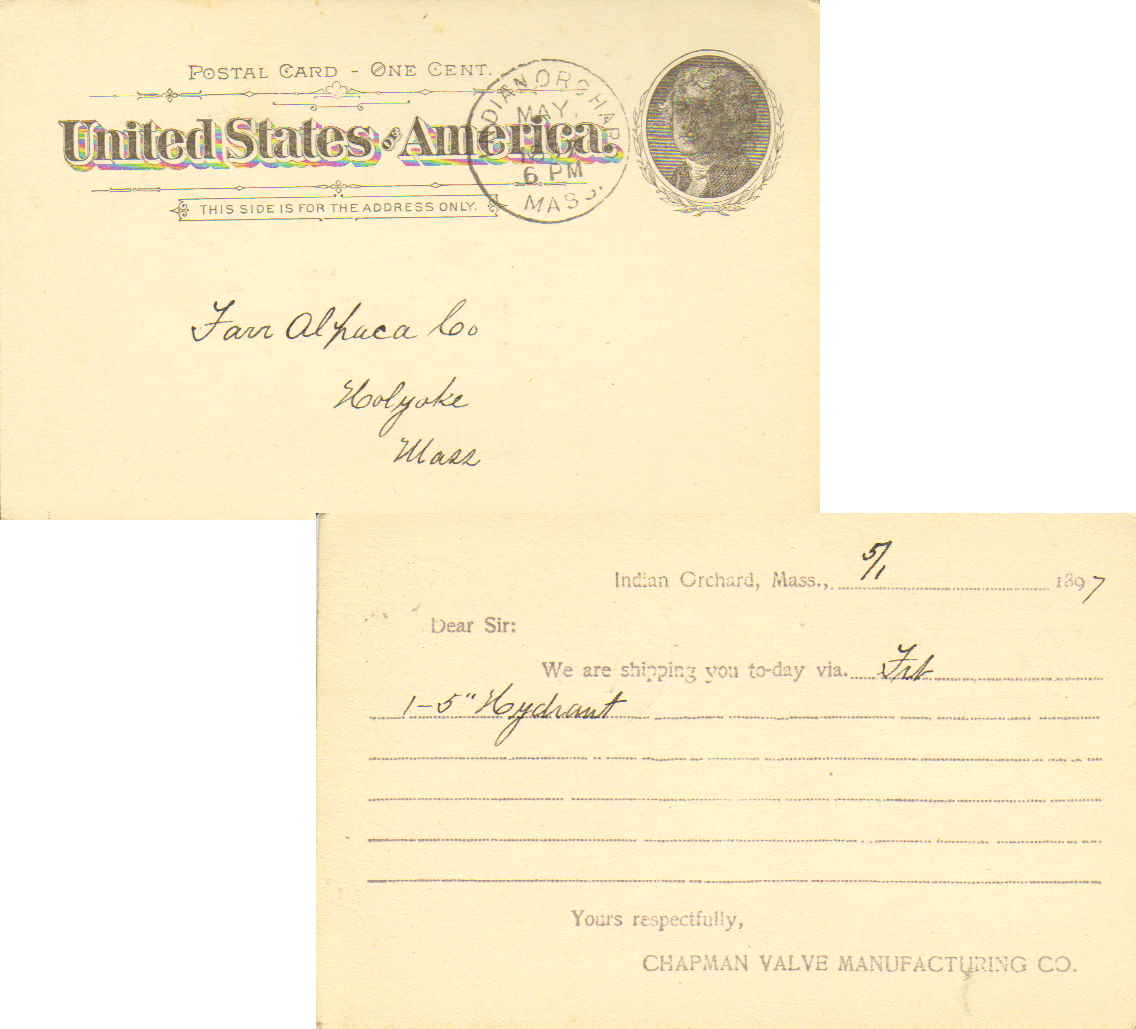 POSTAL CARD - ONE CENT.
United States OF America.
THIS SIDE IS FOR THE ADDRESS ONLY.
MAY
6 PM
MASS.
Farr Alpaca Co
Holyoke
Mass
Indian Orchard, Mass., 5/1 1897
Dear Sir:
We are shipping you to-day via. Frt
1-5" Hydrant
Yours respectfully,
CHAPMAN VALVE MANUFACTURING CO.